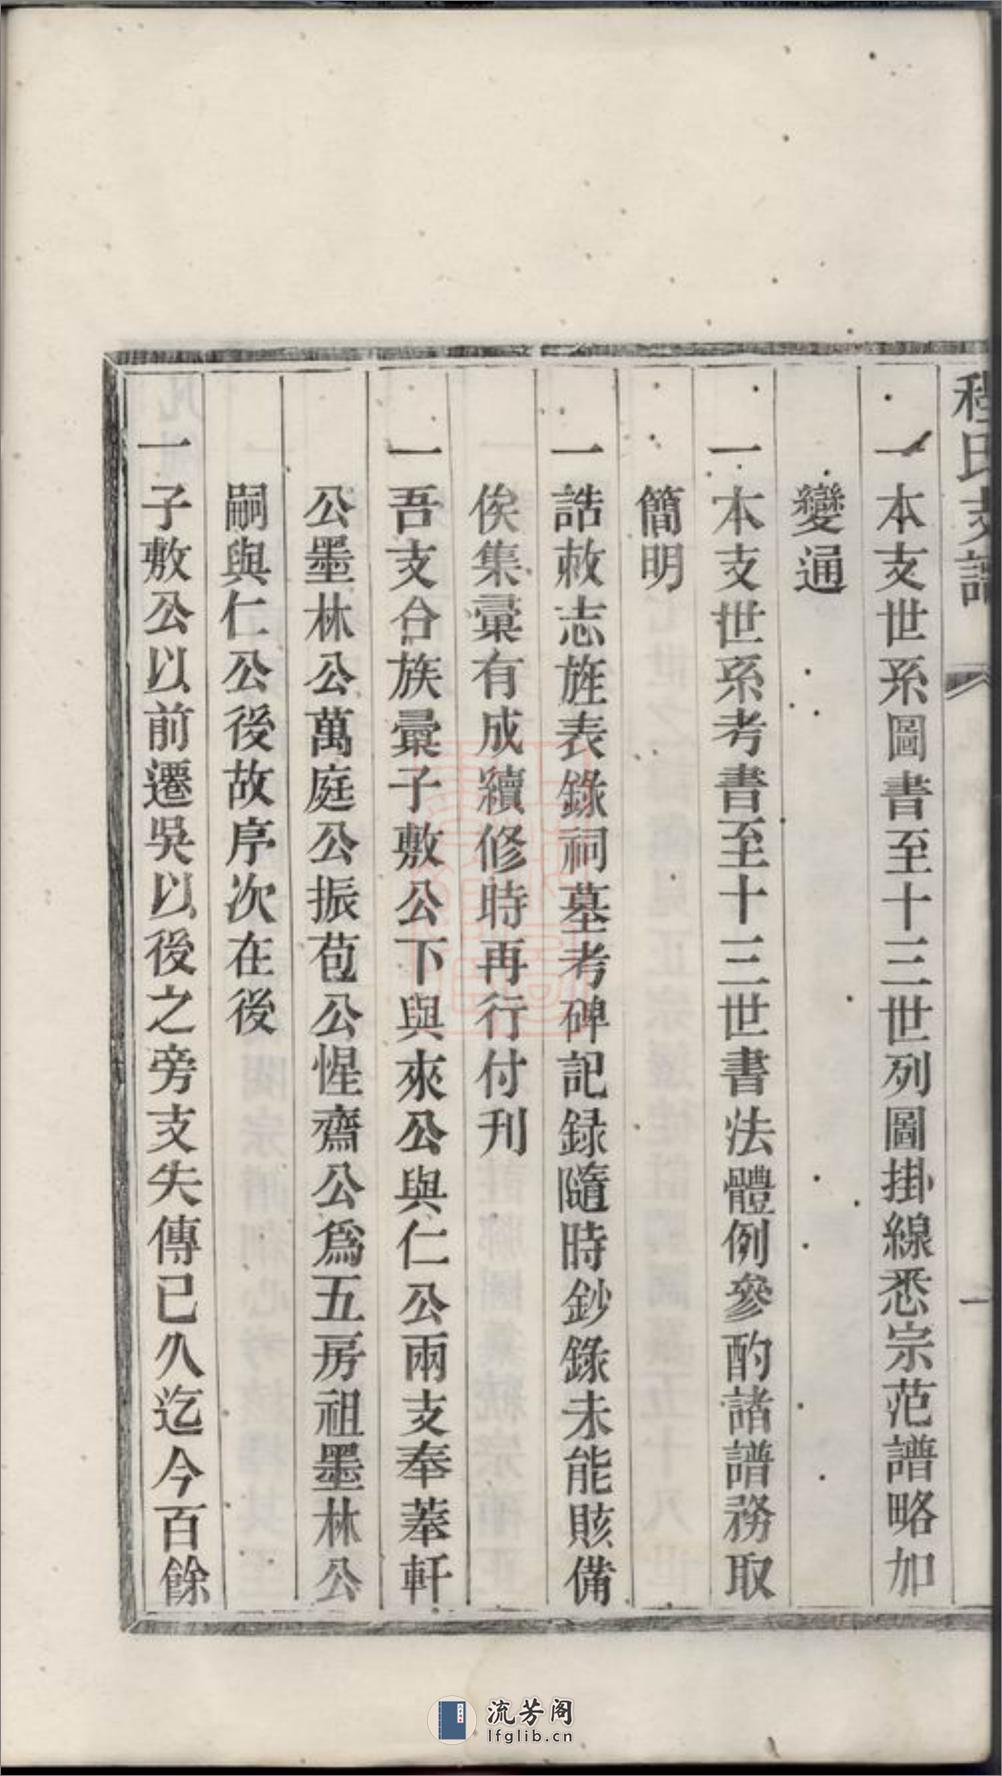 程氏支譜
一
一 本支世系圖書至十三世列圖掛線悉宗范譜略加
變通
一 本支世系考書至十三世書法體例參酌諸譜務取
簡明
一 誥敕志旌表錄祠墓考碑記録隨時鈔錄未能賅備
俟集彙有成續修時再行付刊
一 吾支合族彙子敷公下與來公與仁公兩支奉菶軒
公墨林公萬庭公振苞公惺齋公爲五房祖墨林公
嗣與仁公後故序次在後
一 子敷公以前遷吳以後之旁支失傳已久迄今百餘
流芳阁
lfglib.cn